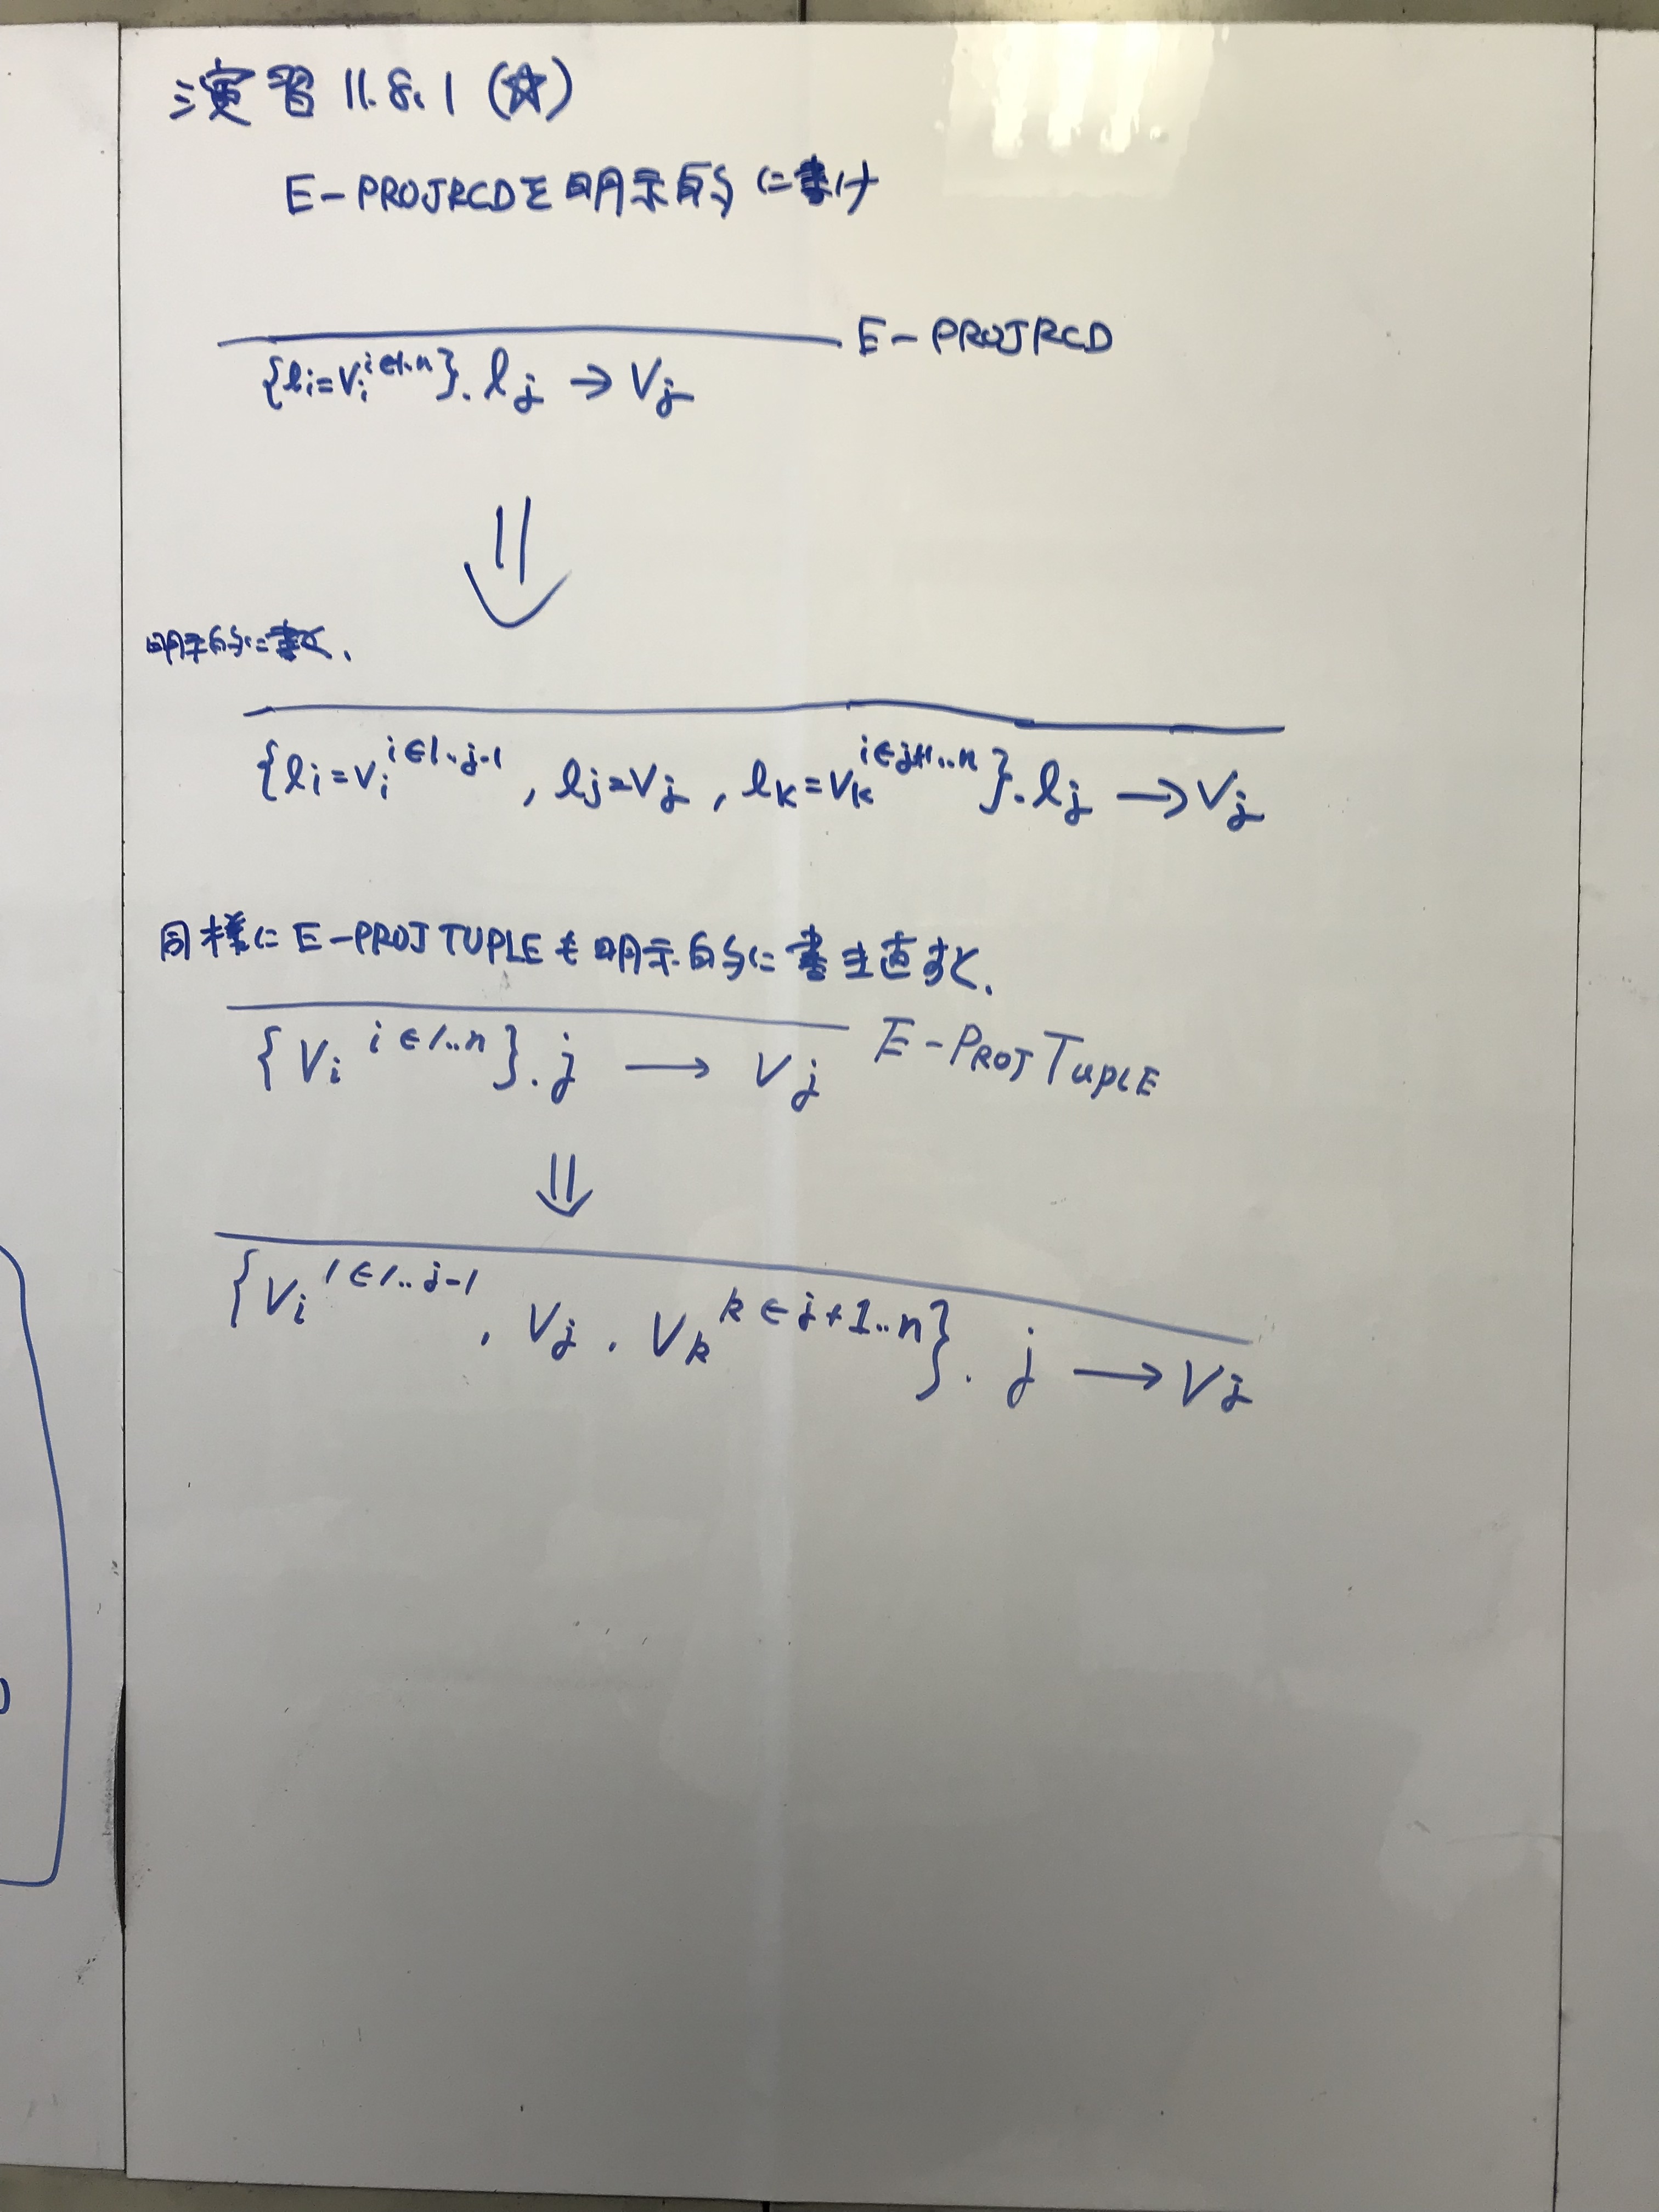 演習 11.8.1 (☆)
E-PROJRCDを明示的に書け
E-PROJRCD
{li=vi^i∈1..n}.lj → vj
明示的に書く.
{li=vi^i∈1..j-1, lj=vj, lk=vk^i∈j+1..n}.lj → vj
同様に E-PROJTUPLEも明示的に書き直すと.
{vi^i∈1..n}.j → vj E-PROJTUPLE
{vi^i∈1..j-1, vj, vk^k∈j+1..n}.j → vj